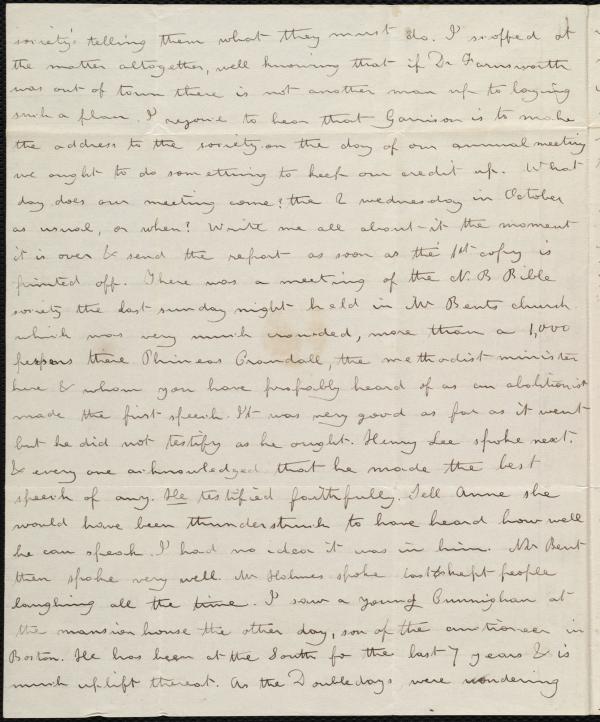 society's telling them what they must do. I scoffed at
the matter altogether, well knowing that if Dr Farnsworth
was out of town there is not another man up to laying
such a plan. I rejoice to hear that Garrison is to make
the address to the society on the day of our annual meeting
we ought to do something to keep our credit up. What
day does our meeting come? the 2 wednesday in October
as usual, or when? Write me all about it the moment
it is over & send the report as soon as the 1st copy is
printed off. There was a meeting of the N. B Bible
society the last sunday night held in Mr Bents church
which was very much crowded, more than a 1,000
persons there Phineas Crandall, the methodist minister
here & whom you have probably heard of as an abolitionist
made the first speech. It was very good as far as it went
but he did not testify as he ought. Henry Lee spoke next.
& every one acknowledged that he made the best
speech of any. He testified faithfully. Tell Anne she
would have been thunderstruck to have heard how well
he can speak. I had no idea it was in him. Mr Bent
then spoke very well. Mr Holmes spoke last & kept people
laughing all the time. I saw a young Cunnighan at
the mansion house the other day, son of the auctioneer in
Boston. He has been at the South for the last 7 years & is
much uplift thereat. As the Doubledays were wondering